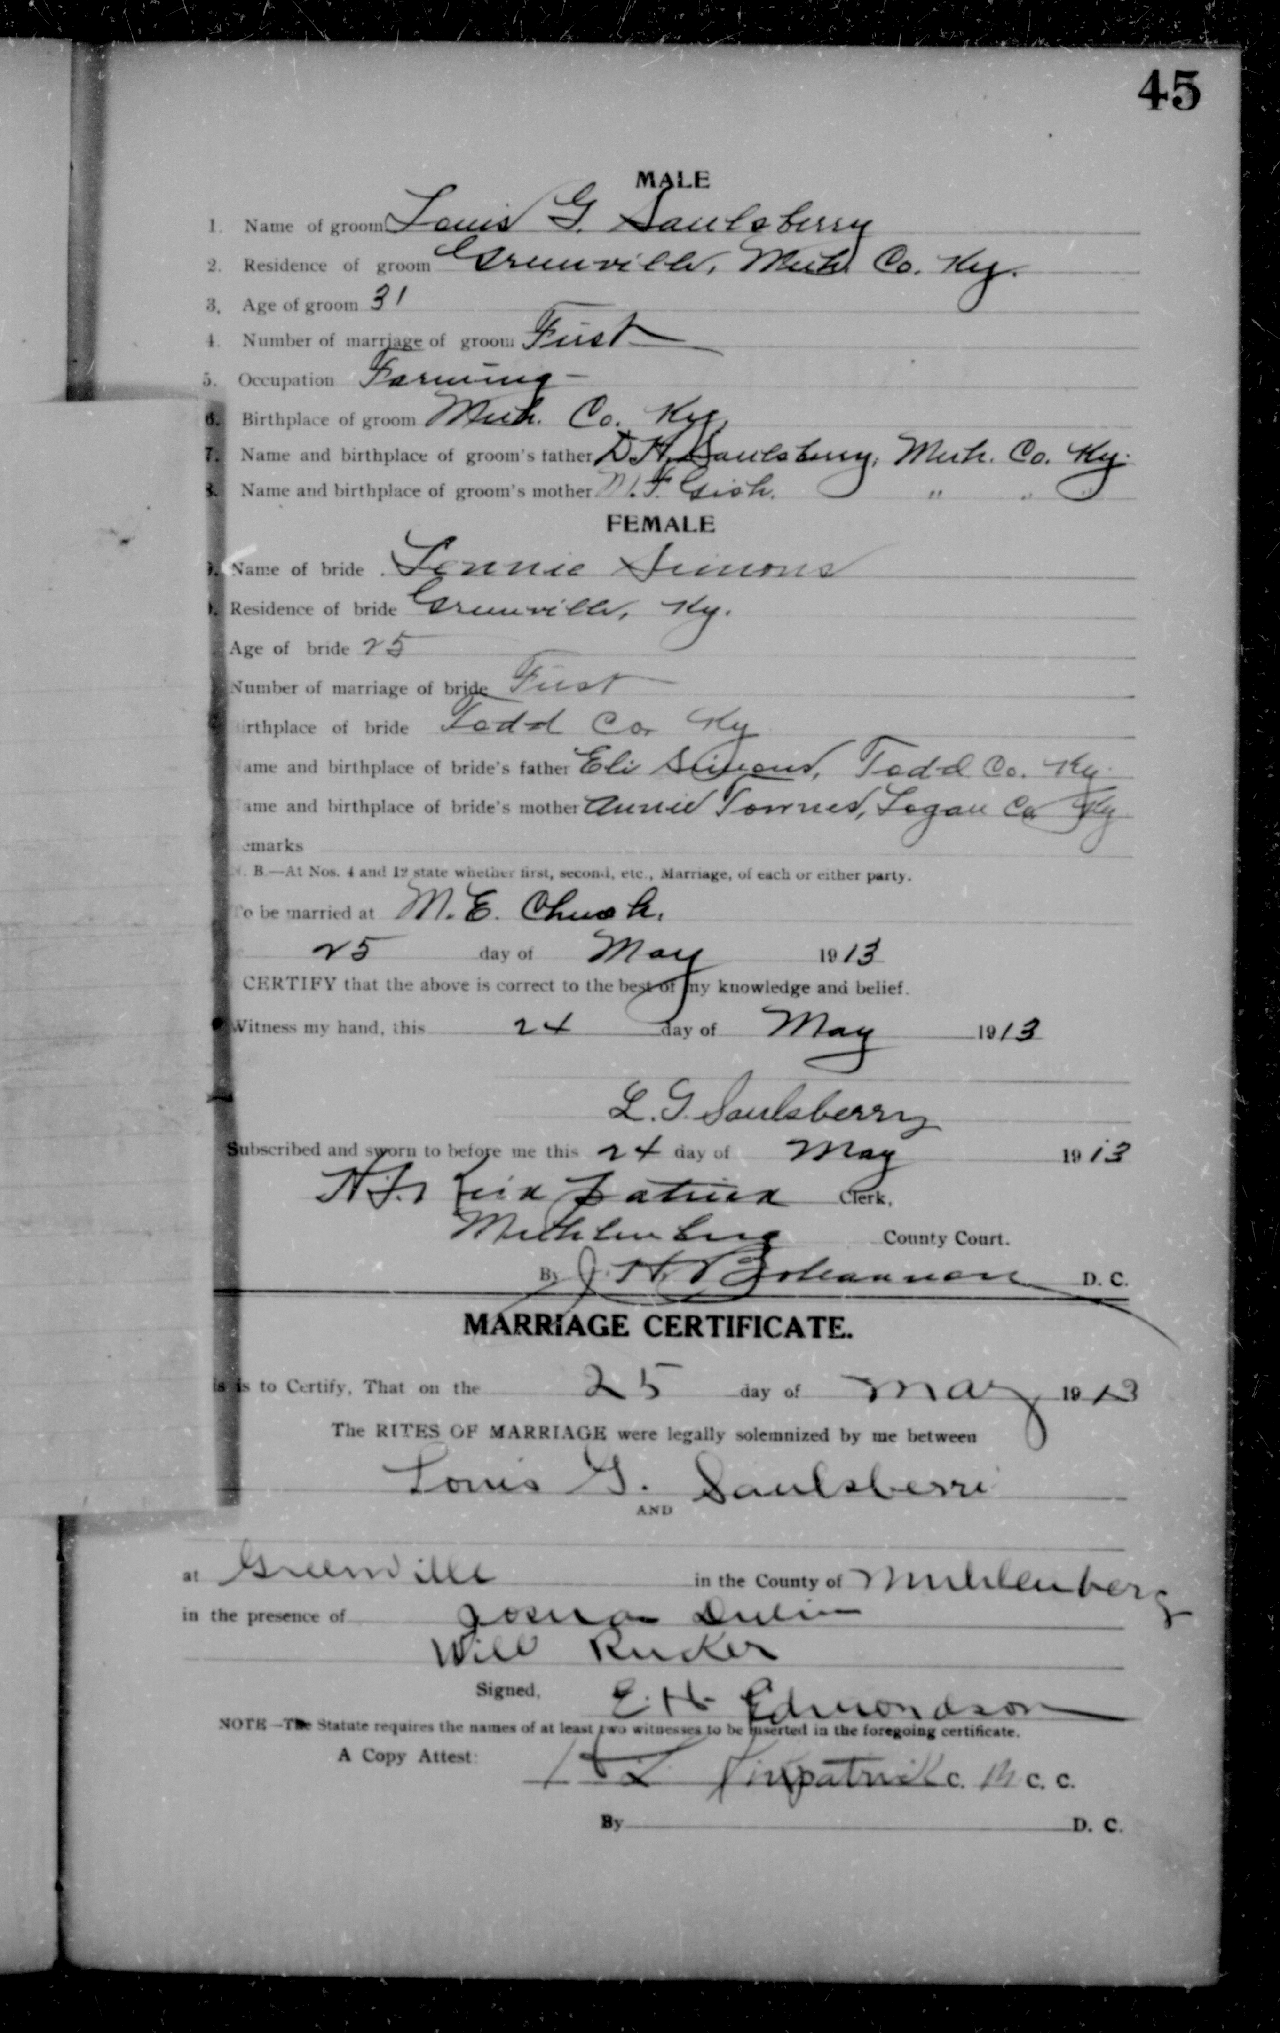 45
MALE
1. Name of groom Louis G. Saulsberry
2. Residence of groom Greenville, Muh. Co. Ky.
3. Age of groom 31
4. Number of marriage of groom First
5. Occupation Farming -
6. Birthplace of groom Muh. Co. Ky.
7. Name and birthplace of groom's father D. H. Saulsberry, Muh. Co. Ky.
8. Name and birthplace of groom's mother M. F. Gish. " " "
FEMALE
Name of bride Lonnie Simons
Residence of bride Greenville, Ky.
Age of bride 25
Number of marriage of bride First
irthplace of bride Todd Co. Ky
ame and birthplace of bride's father Eli Simons, Todd Co. Ky.
ame and birthplace of bride's mother Annie Townes, Logan Co Ky
emarks
. B.—At Nos. 4 and 12 state whether first, second, etc., Marriage, of each or either party.
To be married at M. E. Church.
25 day of May 1913
CERTIFY that the above is correct to the best of my knowledge and belief.
Witness my hand, this 24 day of May 1913
L. G. Saulsberry
Subscribed and sworn to before me this 24 day of May 1913
Kirkpatrick Clerk,
Muhlenberg County Court.
By J. H. Bohannon D. C.
MARRIAGE CERTIFICATE.
is to Certify, That on the 25 day of May 1913
The RITES OF MARRIAGE were legally solemnized by me between
Louis G. Saulsberri
AND
at Greenville in the County of Muhlenberg
in the presence of Dulin
Will Rucker
Signed, E. H. Edmondson
NOTE—The Statute requires the names of at least two witnesses to be inserted in the foregoing certificate.
A Copy Attest: Kirkpatrick C. M C. C.
By D. C.